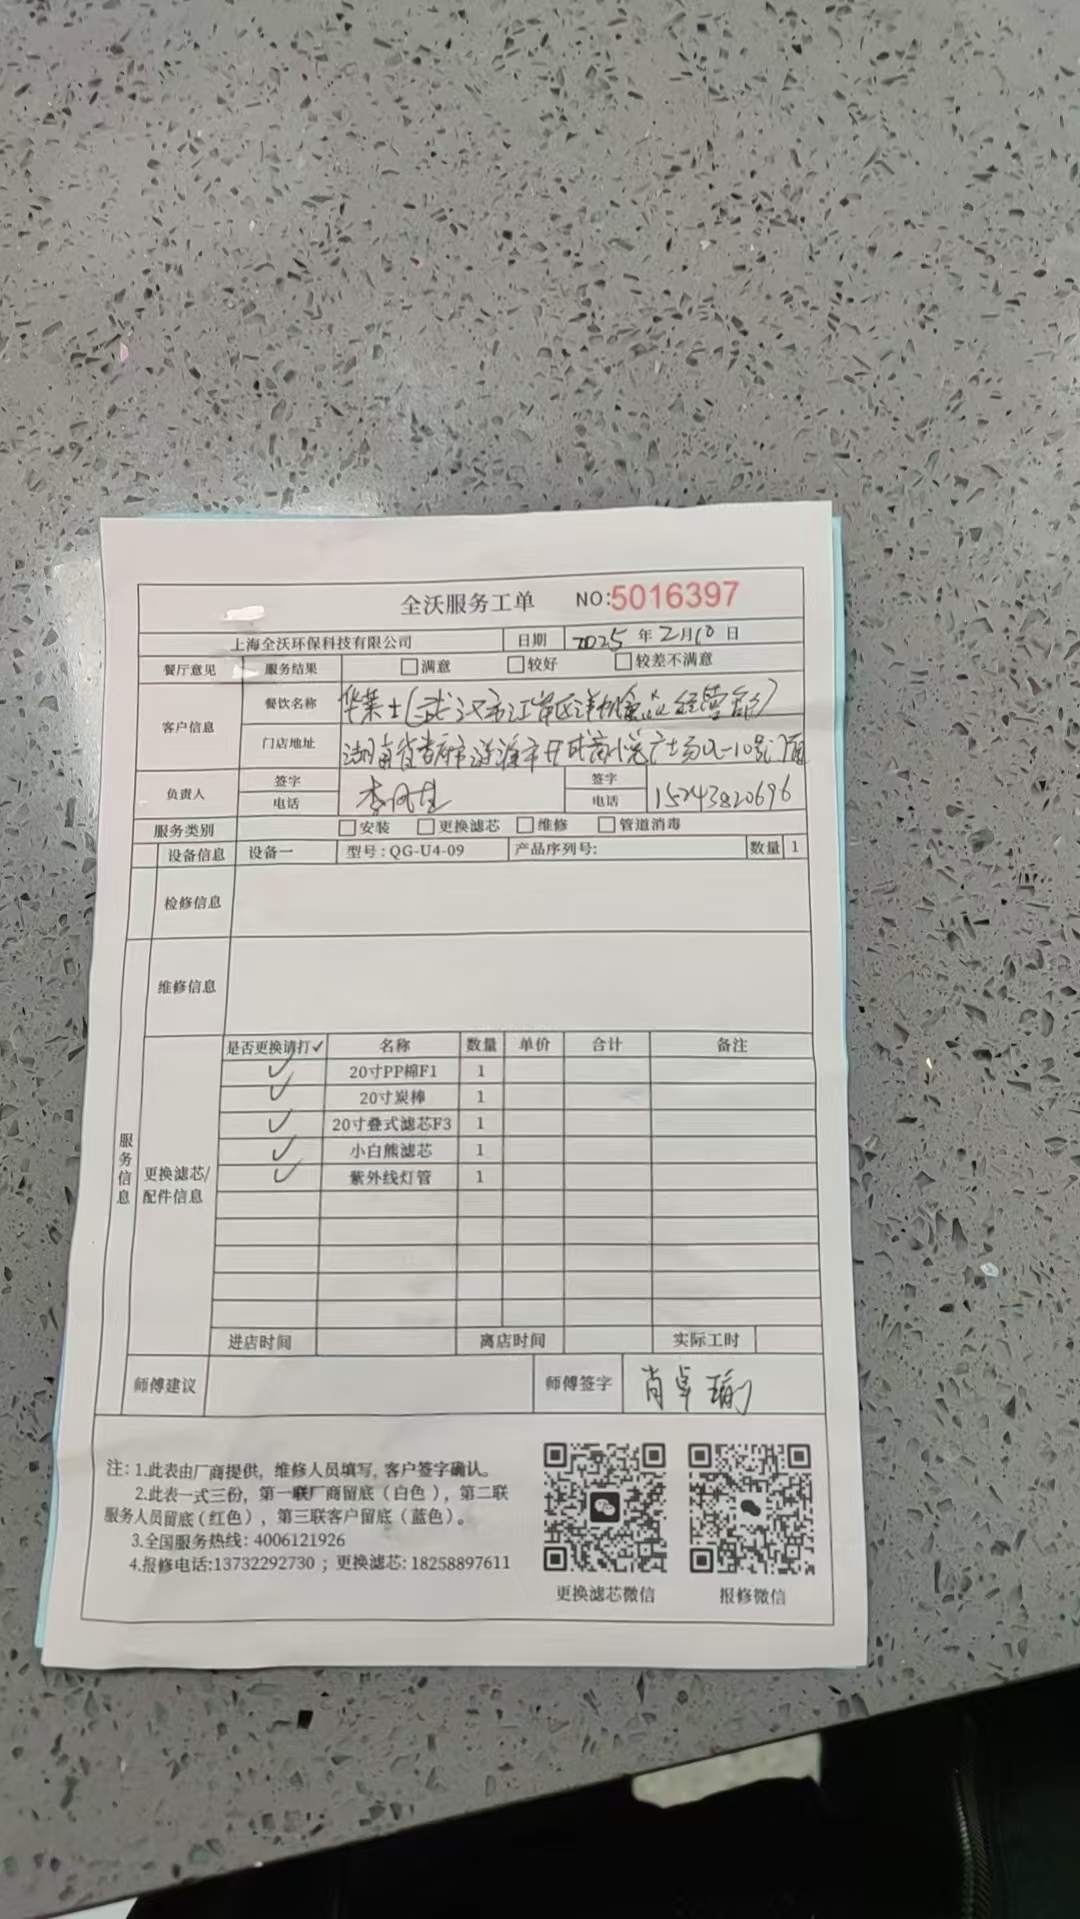 全沃服务工单 NO:5016397
上海全沃环保科技有限公司 日期 2025年2月10日
餐厅意见 服务结果 □满意 □较好 □较差不满意
客户信息 餐饮名称 华莱士(武汉市江岸区 食品经营部)
门店地址 湖南省 市 广场 -10号门面
负责人 签字 签字
电话 李 电话 15243820696
服务类别 □安装 □更换滤芯 □维修 □管道消毒
设备信息 设备一 型号:QG-U4-09 产品序列号: 数量 1
检修信息
维修信息
服务信息
更换滤芯/配件信息
是否更换请打✓ 名称 数量 单价 合计 备注
✓ 20寸PP棉F1 1
✓ 20寸炭棒 1
✓ 20寸叠式滤芯F3 1
✓ 小白熊滤芯 1
✓ 紫外线灯管 1
进店时间 离店时间 实际工时
师傅建议 师傅签字 肖卓瑜
注:1.此表由厂商提供,维修人员填写,客户签字确认。
2.此表一式三份,第一联厂商留底(白色),第二联
服务人员留底(红色),第三联客户留底(蓝色)。
3.全国服务热线:4006121926
4.报修电话:13732292730;更换滤芯:18258897611
更换滤芯微信 报修微信